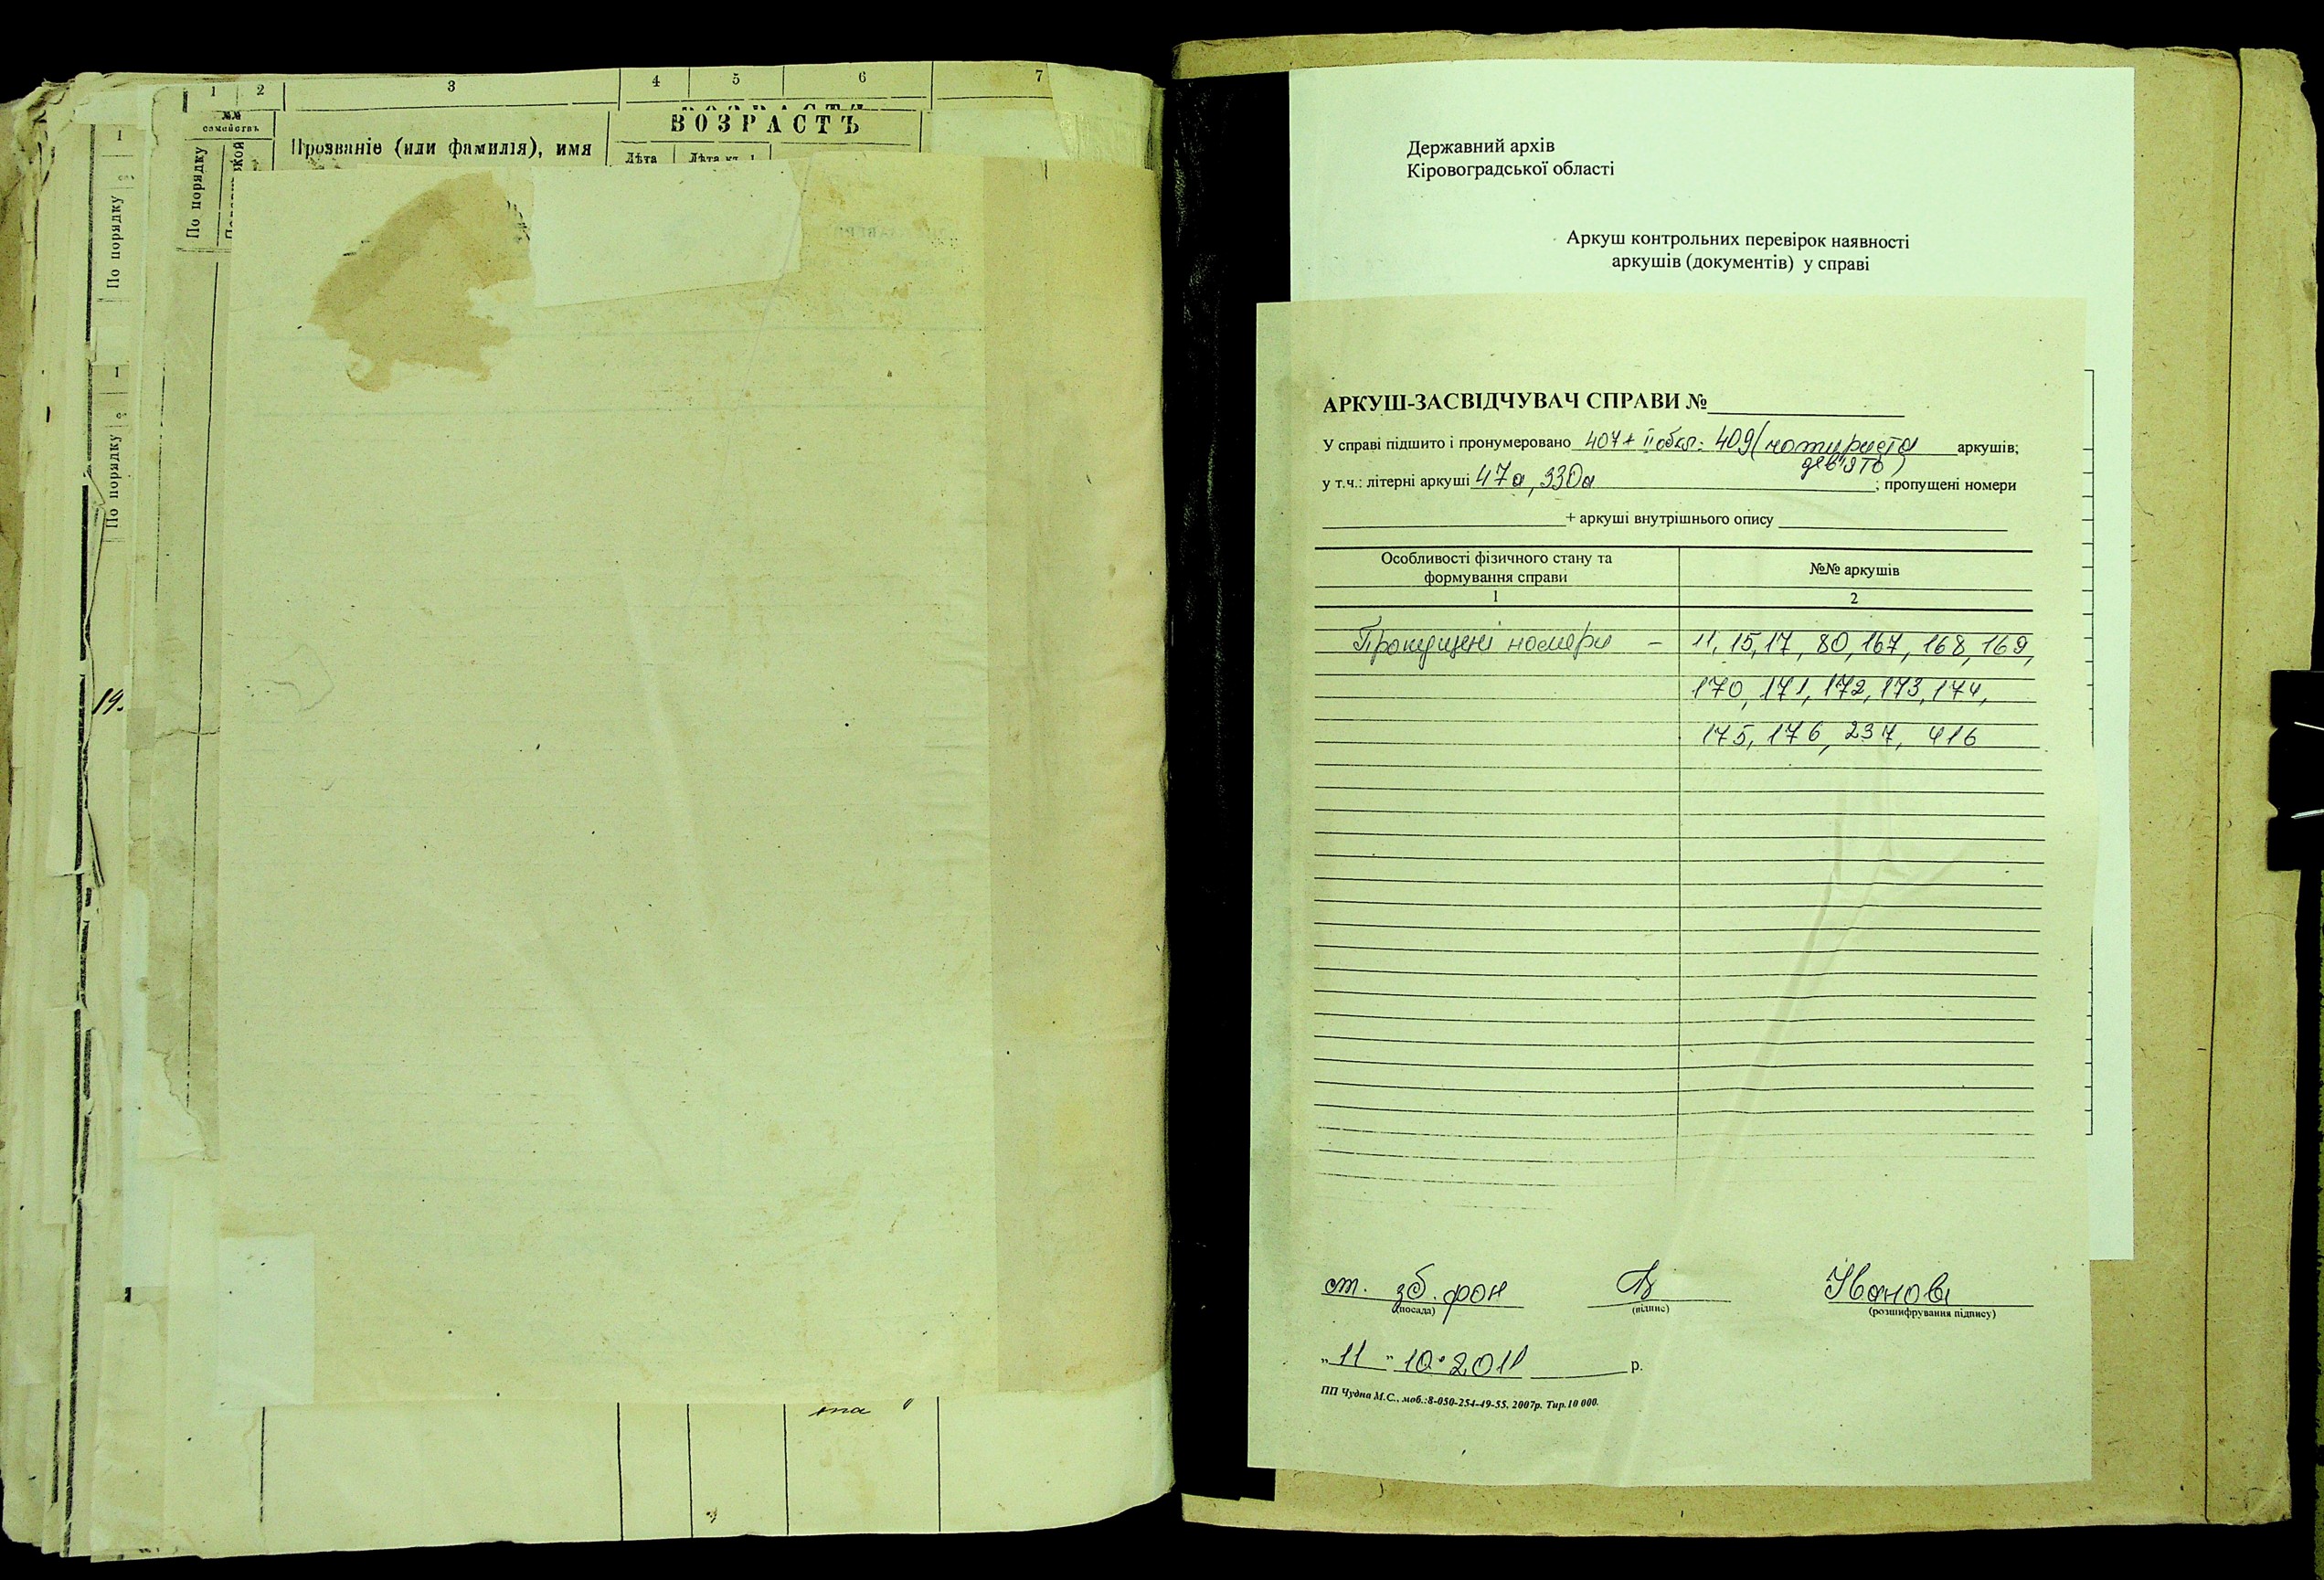 1 2 3 4 5 6 7
№№
семействъ
По порядку
Прозваніе (или фамилія), имя
ВОЗРАСТЪ
Лѣта
1
По порядку
1
По порядку
19.
Державний архів
Кіровоградської області
Аркуш контрольних перевірок наявності
аркушів (документів) у справі
АРКУШ-ЗАСВІДЧУВАЧ СПРАВИ №
У справі підшито і пронумеровано 407+ II обкл. 409 (чотириста аркушів;
дев'ять)
у т.ч.: літерні аркуші 47а, 330а ; пропущені номери
+ аркуші внутрішнього опису
Особливості фізичного стану та №№ аркушів
формування справи
1 2
Пропущені номери – 11, 15, 17, 80, 167, 168, 169,
170, 171, 172, 173, 174,
175, 176, 237, 416
ст. зб. фон Іванова
(посада) (підпис) (розшифрування підпису)
„ 11 " 10 • 2011 р.
ПП Чудна М.С., моб.:8-050-254-49-55, 2007р. Тир.10 000.